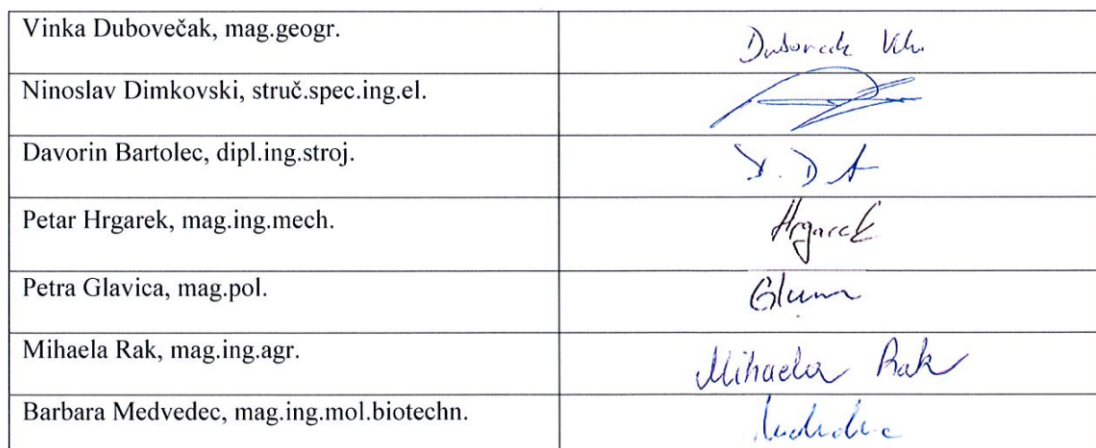 Vinka Dubovečak, mag.geogr.
Ninoslav Dimkovski, struč.spec.ing.el.
Davorin Bartolec, dipl.ing.stroj.
Petar Hrgarek, mag.ing.mech. Hrgarek
Petra Glavica, mag.pol.
Mihaela Rak, mag.ing.agr. Mihaela Rak
Barbara Medvedec, mag.ing.mol.biotechn.